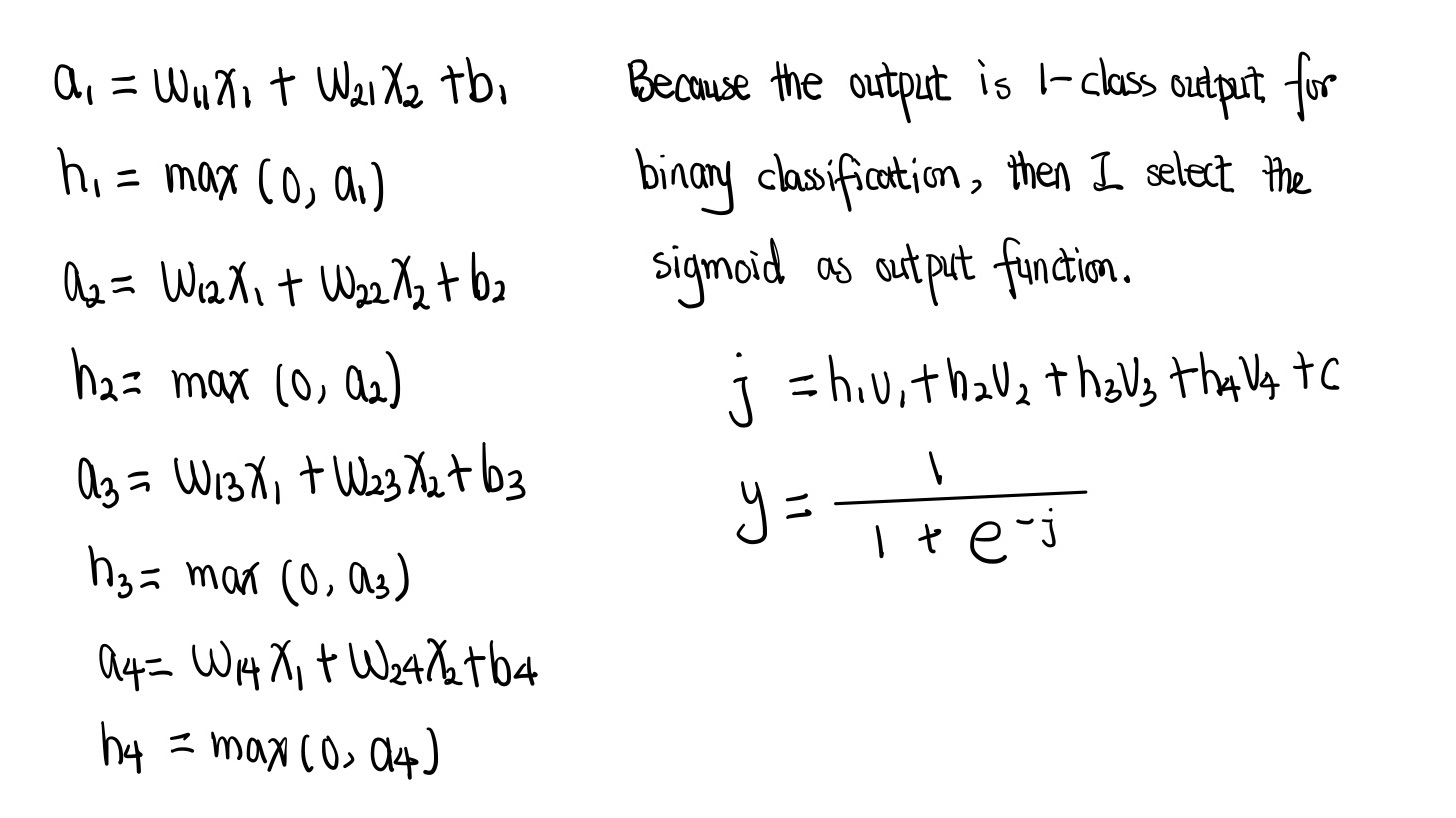 a₁ = w₁₁x₁ + w₂₁x₂ + b₁
h₁ = max (0, a₁)
a₂ = w₁₂x₁ + w₂₂x₂ + b₂
h₂ = max (0, a₂)
a₃ = w₁₃x₁ + w₂₃x₂ + b₃
h₃ = max (0, a₃)
a₄ = w₁₄x₁ + w₂₄x₂ + b₄
h₄ = max (0, a₄)
Because the output is 1-class output for
binary classification, then I select the
sigmoid as output function.
j = h₁v₁ + h₂v₂ + h₃v₃ + h₄v₄ + c
y = 1 / (1 + e^(-j))